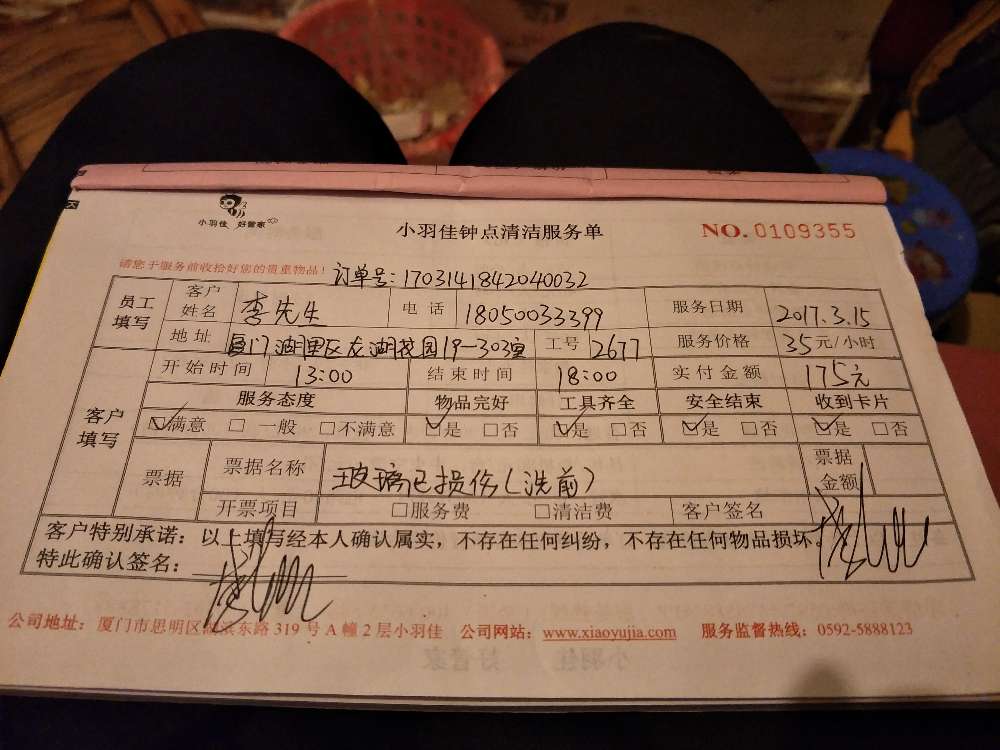 小羽佳 好管家
小羽佳钟点清洁服务单
NO.0109355
请您于服务前收拾好您的贵重物品!
订单号:1703141842040032
员工填写 客户姓名 李先生 电话 18050033399 服务日期 2017.3.15
地址 厦门湖里区东湖花园19-303室 工号 2677 服务价格 35元/小时
客户填写 开始时间 13:00 结束时间 18:00 实付金额 175元
服务态度 物品完好 工具齐全 安全结束 收到卡片
☑满意 □一般 □不满意 ☑是 □否 ☑是 □否 ☑是 □否 ☑是 □否
票据 票据名称 玻璃已损伤(洗前) 票据金额
开票项目 □服务费 □清洁费 客户签名
客户特别承诺:以上填写经本人确认属实,不存在任何纠纷,不存在任何物品损坏
特此确认签名:
公司地址:厦门市思明区湖滨东路319号A幢2层小羽佳 公司网站:www.xiaoyujia.com 服务监督热线:0592-5888123